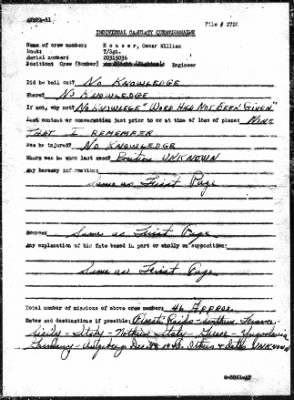 AFPPA-11
File # 2728
INDIVIDUAL CASUALTY QUESTIONNAIRE
Name of crew member: Houser, Oscar William
Rank: T/Sgt.
Serial number:
Position: Crew (Bomber) Engineer
Did he bail out? No KNOWLEDGE
Where? No KNOWLEDGE
If not, why not? No KNOWLEDGE "WORD HAD NOT BEEN GIVEN"
Last contact or conversation just prior to or at time of loss of plane: NONE
THAT I REMEMBER
Was he injured? No KNOWLEDGE
Where was he when last seen? Position UNKNOWN
Any hearsay information:
Same as First Page
Source: Same as First Page
Any explanation of his fate based in part or wholly on supposition:
Same as First Page
Total number of missions of above crew member: 46 Approx.
Dates and destinations if possible: Ploesti Raids - Southern France
Sicily - Italy - Northern Italy - Greece - Yugoslavia
Germany - Dec. Others & Dates UNKNOWN